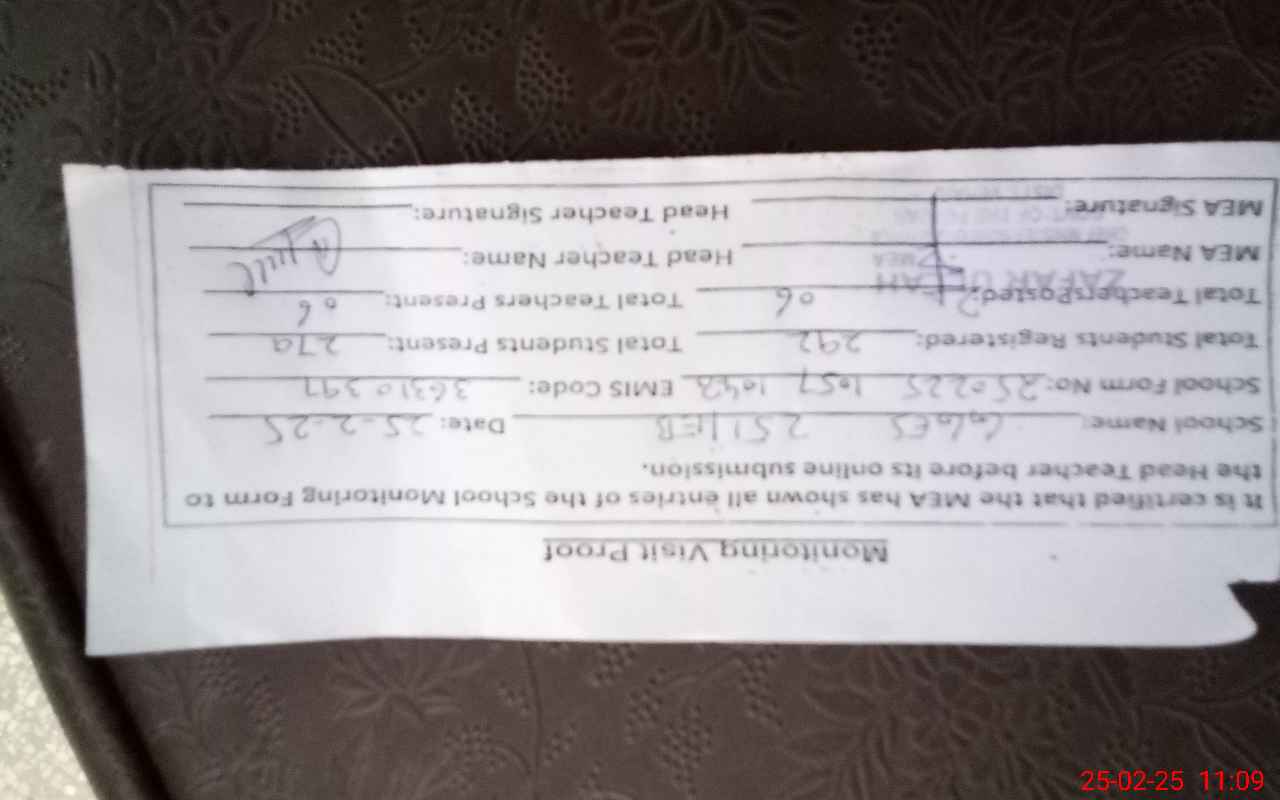 Monitoring Visit Proof
It is certified that the MEA has shown all entries of the School Monitoring Form to
the Head Teacher before its online submission.
School Name: GGES 251/EB Date: 25-2-25
School Form No: 250225 1057 1042 EMIS Code: 36310397
Total Students Registered: 292 Total Students Present: 279
Total Teachers Posted: 06 Total Teachers Present: 06
MEA Name: ZAFAR MEA Head Teacher Name:
MEA Signature: Head Teacher Signature:
25-02-25 11:09